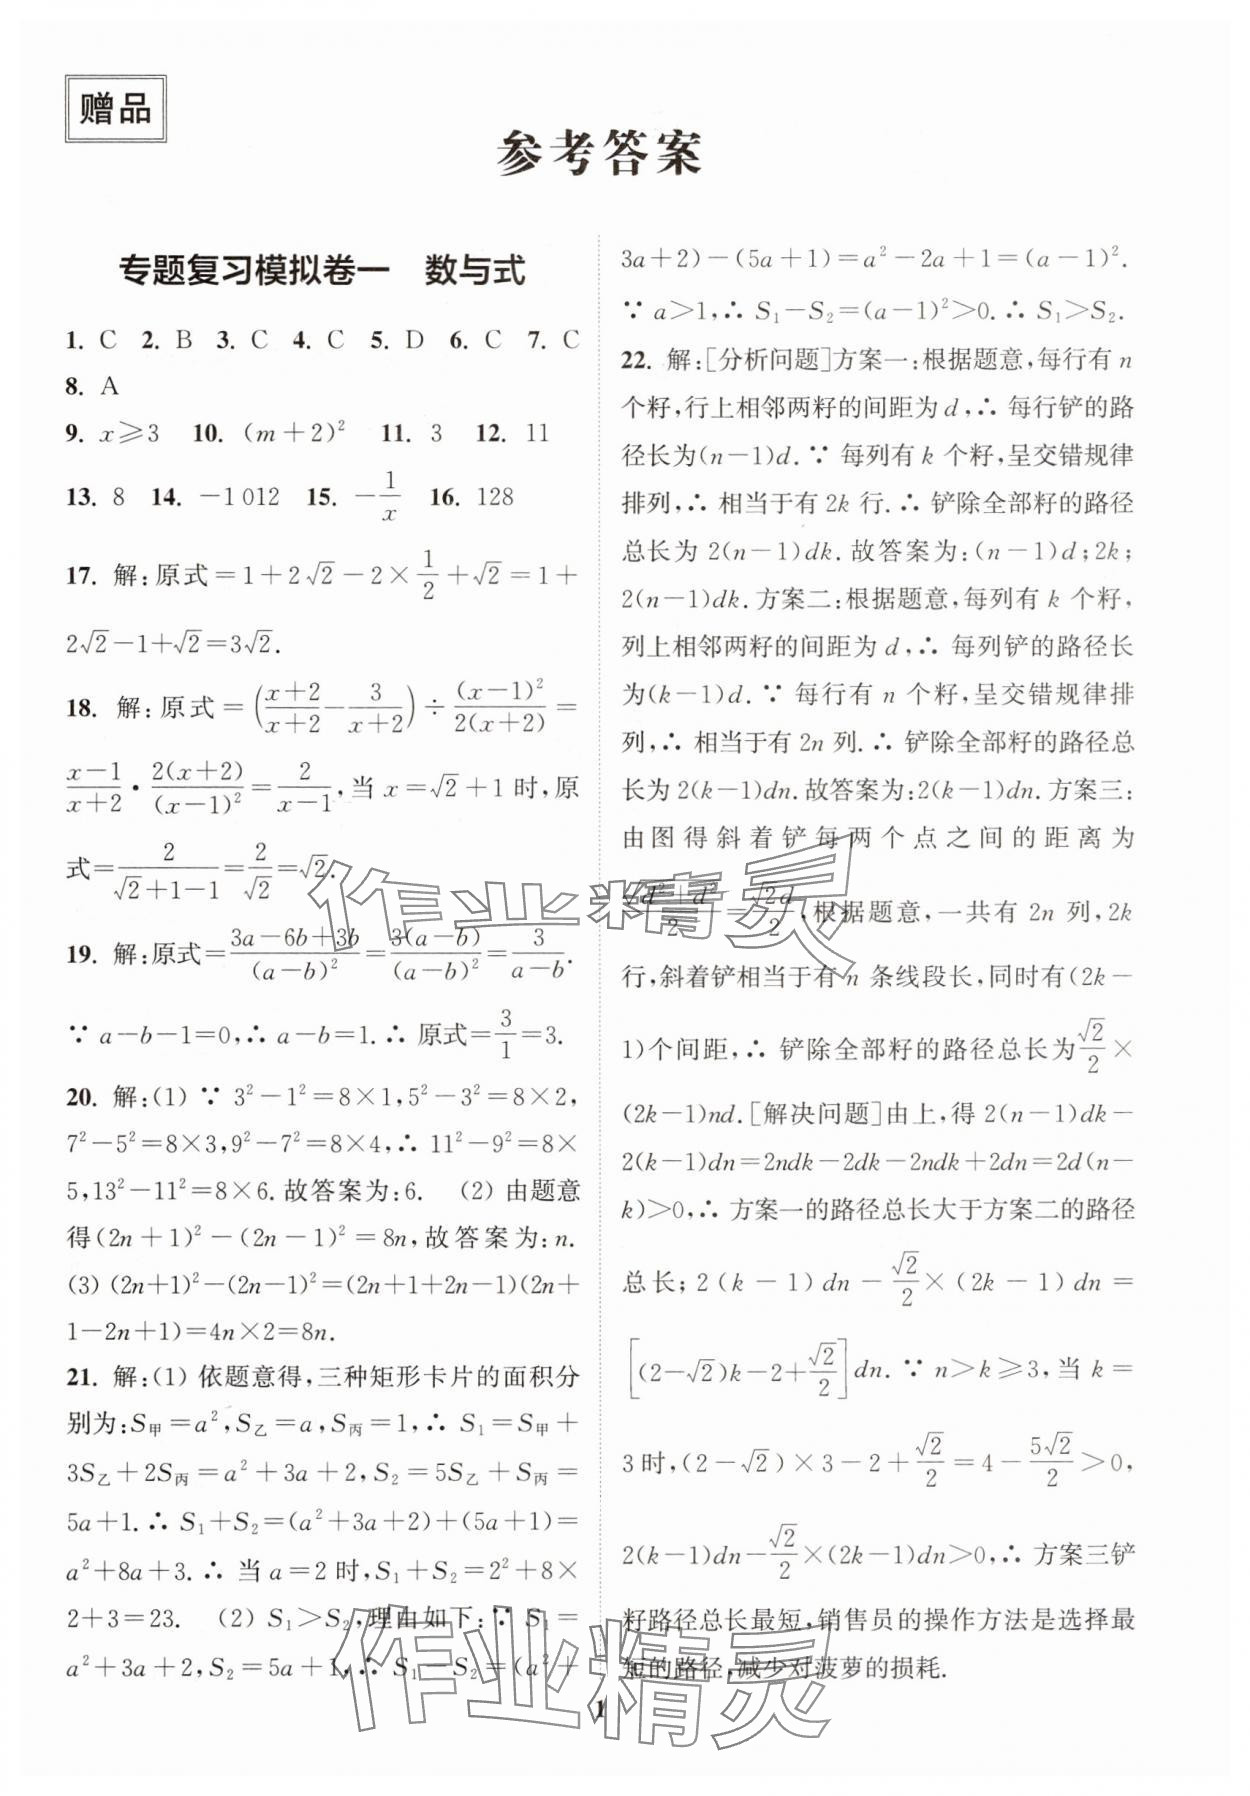 赠品
参考答案
专题复习模拟卷一　数与式
1. C 2. B 3. C 4. C 5. D 6. C 7. C
8. A
9. x⩾3 10. (m+2)² 11. 3 12. 11
13. 8 14. －1 012 15. －1/x 16. 128
17. 解:原式＝1＋2√2－2×1/2＋√2＝1＋
2√2－1＋√2＝3√2.
18. 解:原式＝((x+2)/(x+2)－3/(x+2))÷(x－1)²/2(x+2)＝
(x－1)/(x+2)·2(x+2)/(x－1)²＝2/(x－1),当 x＝√2＋1 时,原
式＝2/(√2+1－1)＝2/√2＝√2.
19. 解:原式＝(3a－6b+3b)/(a－b)²＝3(a－b)/(a－b)²＝3/(a－b).
∵ a－b－1＝0,∴ a－b＝1.∴ 原式＝3/1＝3.
20. 解:(1) ∵ 3²－1²＝8×1,5²－3²＝8×2,
7²－5²＝8×3,9²－7²＝8×4,∴ 11²－9²＝8×
5,13²－11²＝8×6.故答案为:6. (2) 由题意
得(2n＋1)²－(2n－1)²＝8n,故答案为:n.
(3) (2n+1)²－(2n－1)²＝(2n+1+2n－1)(2n+
1－2n+1)＝4n×2＝8n.
21. 解:(1) 依题意得,三种矩形卡片的面积分
别为:S甲＝a²,S乙＝a,S丙＝1,∴ S₁＝S甲＋
3S乙＋2S丙＝a²＋3a＋2,S₂＝5S乙＋S丙＝
5a＋1.∴ S₁＋S₂＝(a²＋3a＋2)＋(5a＋1)＝
a²＋8a＋3.∴ 当 a＝2 时,S₁＋S₂＝2²＋8×
2＋3＝23. (2) S₁＞S₂,理由如下:∵ S₁＝
a²＋3a＋2,S₂＝5a＋1,∴ S₁－S₂＝(a²＋
3a＋2)－(5a＋1)＝a²－2a＋1＝(a－1)².
∵ a＞1,∴ S₁－S₂＝(a－1)²＞0.∴ S₁＞S₂.
22. 解:[分析问题]方案一:根据题意,每行有 n
个籽,行上相邻两籽的间距为 d,∴ 每行铲的路
径长为(n－1)d.∵ 每列有 k 个籽,呈交错规律
排列,∴ 相当于有 2k 行.∴ 铲除全部籽的路径
总长为 2(n－1)dk.故答案为:(n－1)d;2k;
2(n－1)dk.方案二:根据题意,每列有 k 个籽,
列上相邻两籽的间距为 d,∴ 每列铲的路径长
为(k－1)d.∵ 每行有 n 个籽,呈交错规律排
列,∴ 相当于有 2n 列.∴ 铲除全部籽的路径总
长为 2(k－1)dn.故答案为:2(k－1)dn.方案三:
由图得斜着铲每两个点之间的距离为
√(d²+d²)/2＝√2d/2,根据题意,一共有 2n 列,2k
行,斜着铲相当于有 n 条线段长,同时有(2k－
1)个间距,∴ 铲除全部籽的路径总长为√2/2×
(2k－1)nd.[解决问题]由上,得 2(n－1)dk－
2(k－1)dn＝2ndk－2dk－2ndk＋2dn＝2d(n－
k)＞0,∴ 方案一的路径总长大于方案二的路径
总长;2(k－1)dn－√2/2×(2k－1)dn＝
[(2－√2)k－2＋√2/2]dn.∵ n＞k⩾3,当 k＝
3 时,(2－√2)×3－2＋√2/2＝4－5√2/2＞0,
2(k－1)dn－√2/2×(2k－1)dn＞0,∴ 方案三铲
籽路径总长最短,销售员的操作方法是选择最
短的路径,减少对菠萝的损耗.
1
作业精灵
作业精灵